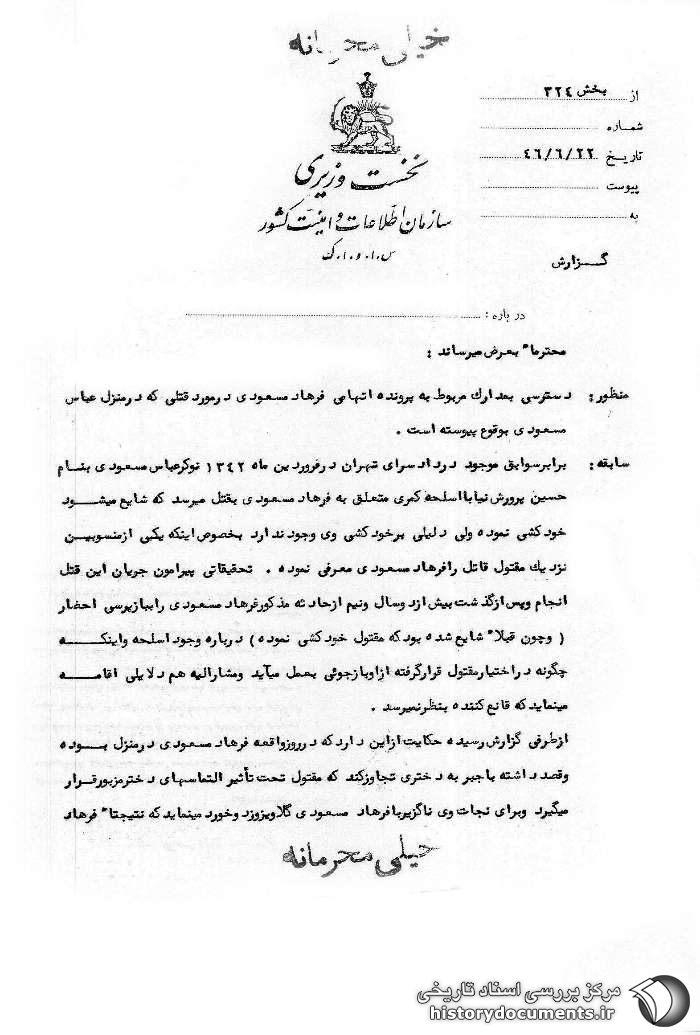 خیلی محرمانه
از بخش ۳۲۴
شماره
تاریخ ۴۶/۶/۲۲
پیوست
به
نخست وزیری
سازمان اطلاعات و امنیت کشور
س.ا.و.ا.ک
گزارش
درباره :
محترما" بعرض میرساند :
منظور : دسترسی بمدارك مربوط به پرونده اتهامی فرهاد مسعودی درمورد قتلی که درمنزل عباس
مسعودی بوقوع پیوسته است .
سابقه : برابرسوابق موجود دردادسرای تهران درفروردین ماه ۱۳۴۲ نوکرعباس مسعودی بنام
حسین پرورش نیابااسلحه کمری متعلق به فرهاد مسعودی بقتل میرسد که شایع میشود
خودکشی نموده ولی دلیلی برخودکشی وی وجودندارد بخصوص اینکه یکی ازمنسوبین
نزدیك مقتول قاتل رافرهاد مسعودی معرفی نموده . تحقیقاتی پیرامون جریان این قتل
انجام وپس ازگذشت بیش ازدوسال ونیم ازحادثه مذکورفرهاد مسعودی راببازپرسی احضار
( وچون قبلا" شایع شده بودکه مقتول خودکشی نموده ) درباره وجود اسلحه واینکه
چگونه دراختیارمقتول قرارگرفته ازاوبازجوئی بعمل میآید ومشارالیه هم دلایلی اقامه
مینماید که قانع کننده بنظرنمیرسد .
ازطرفی گزارش رسیده حکایت ازاین دارد که درروزواقعه فرهاد مسعودی درمنزل بوده
وقصد داشته باجبر به دختری تجاوزکند که مقتول تحت تأثیر التماسهای دخترمزبورقرار
میگیرد وبرای نجات وی ناگزیربافرهاد مسعودی گلاویزوزد وخورد مینماید که نتیجتا" فرهاد
خیلی محرمانه
مرکز بررسی اسناد تاریخی
historydocuments.ir